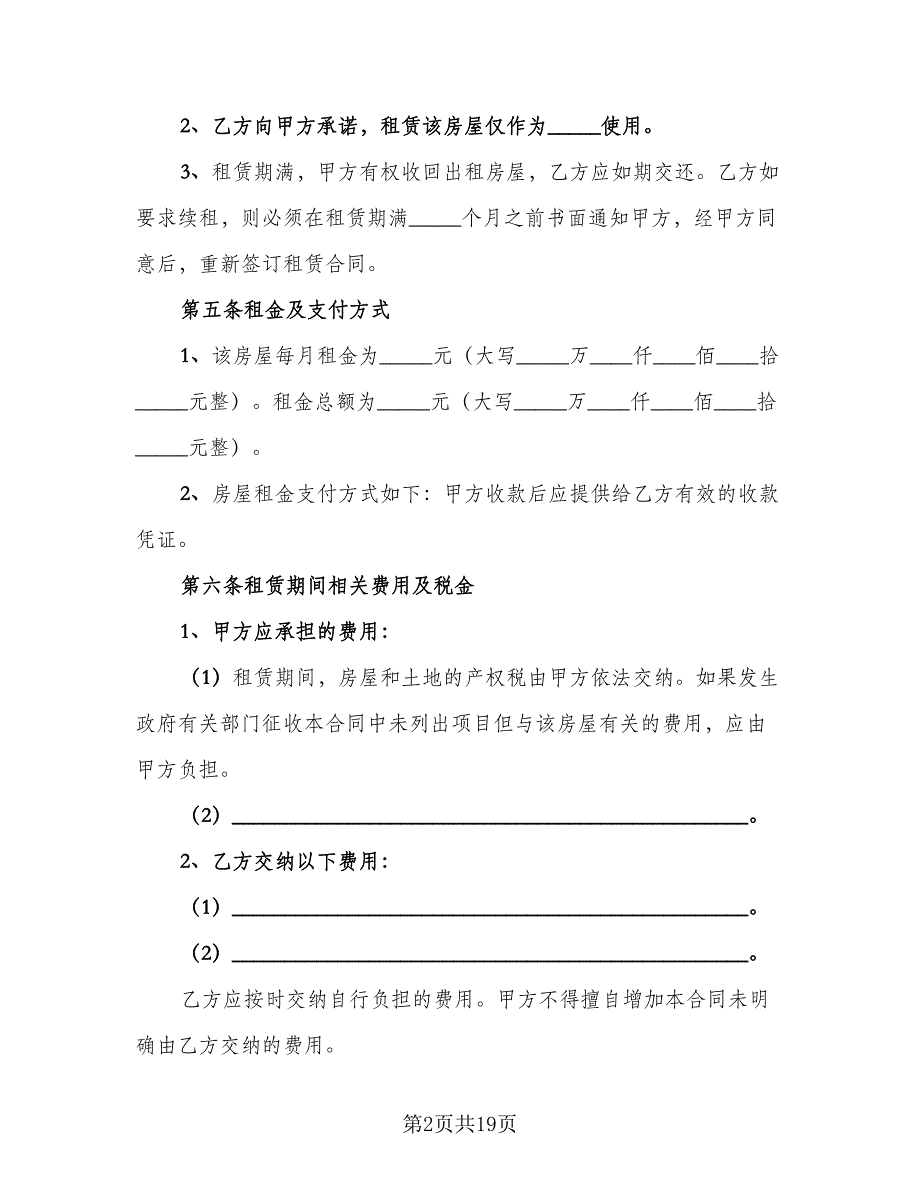 2、乙方向甲方承诺，租赁该房屋仅作为_____使用。
3、租赁期满，甲方有权收回出租房屋，乙方应如期交还。乙方如
要求续租，则必须在租赁期满_____个月之前书面通知甲方，经甲方同
意后，重新签订租赁合同。
第五条租金及支付方式
1、该房屋每月租金为_____元（大写_____万____仟____佰____拾
_____元整）。租金总额为_____元（大写_____万____仟____佰____拾
_____元整）。
2、房屋租金支付方式如下：甲方收款后应提供给乙方有效的收款
凭证。
第六条租赁期间相关费用及税金
1、甲方应承担的费用：
（1）租赁期间，房屋和土地的产权税由甲方依法交纳。如果发生
政府有关部门征收本合同中未列出项目但与该房屋有关的费用，应由
甲方负担。
（2）_________________________________________________。
2、乙方交纳以下费用：
（1）_________________________________________________。
（2）_________________________________________________。
乙方应按时交纳自行负担的费用。甲方不得擅自增加本合同未明
确由乙方交纳的费用。
第2页共19页